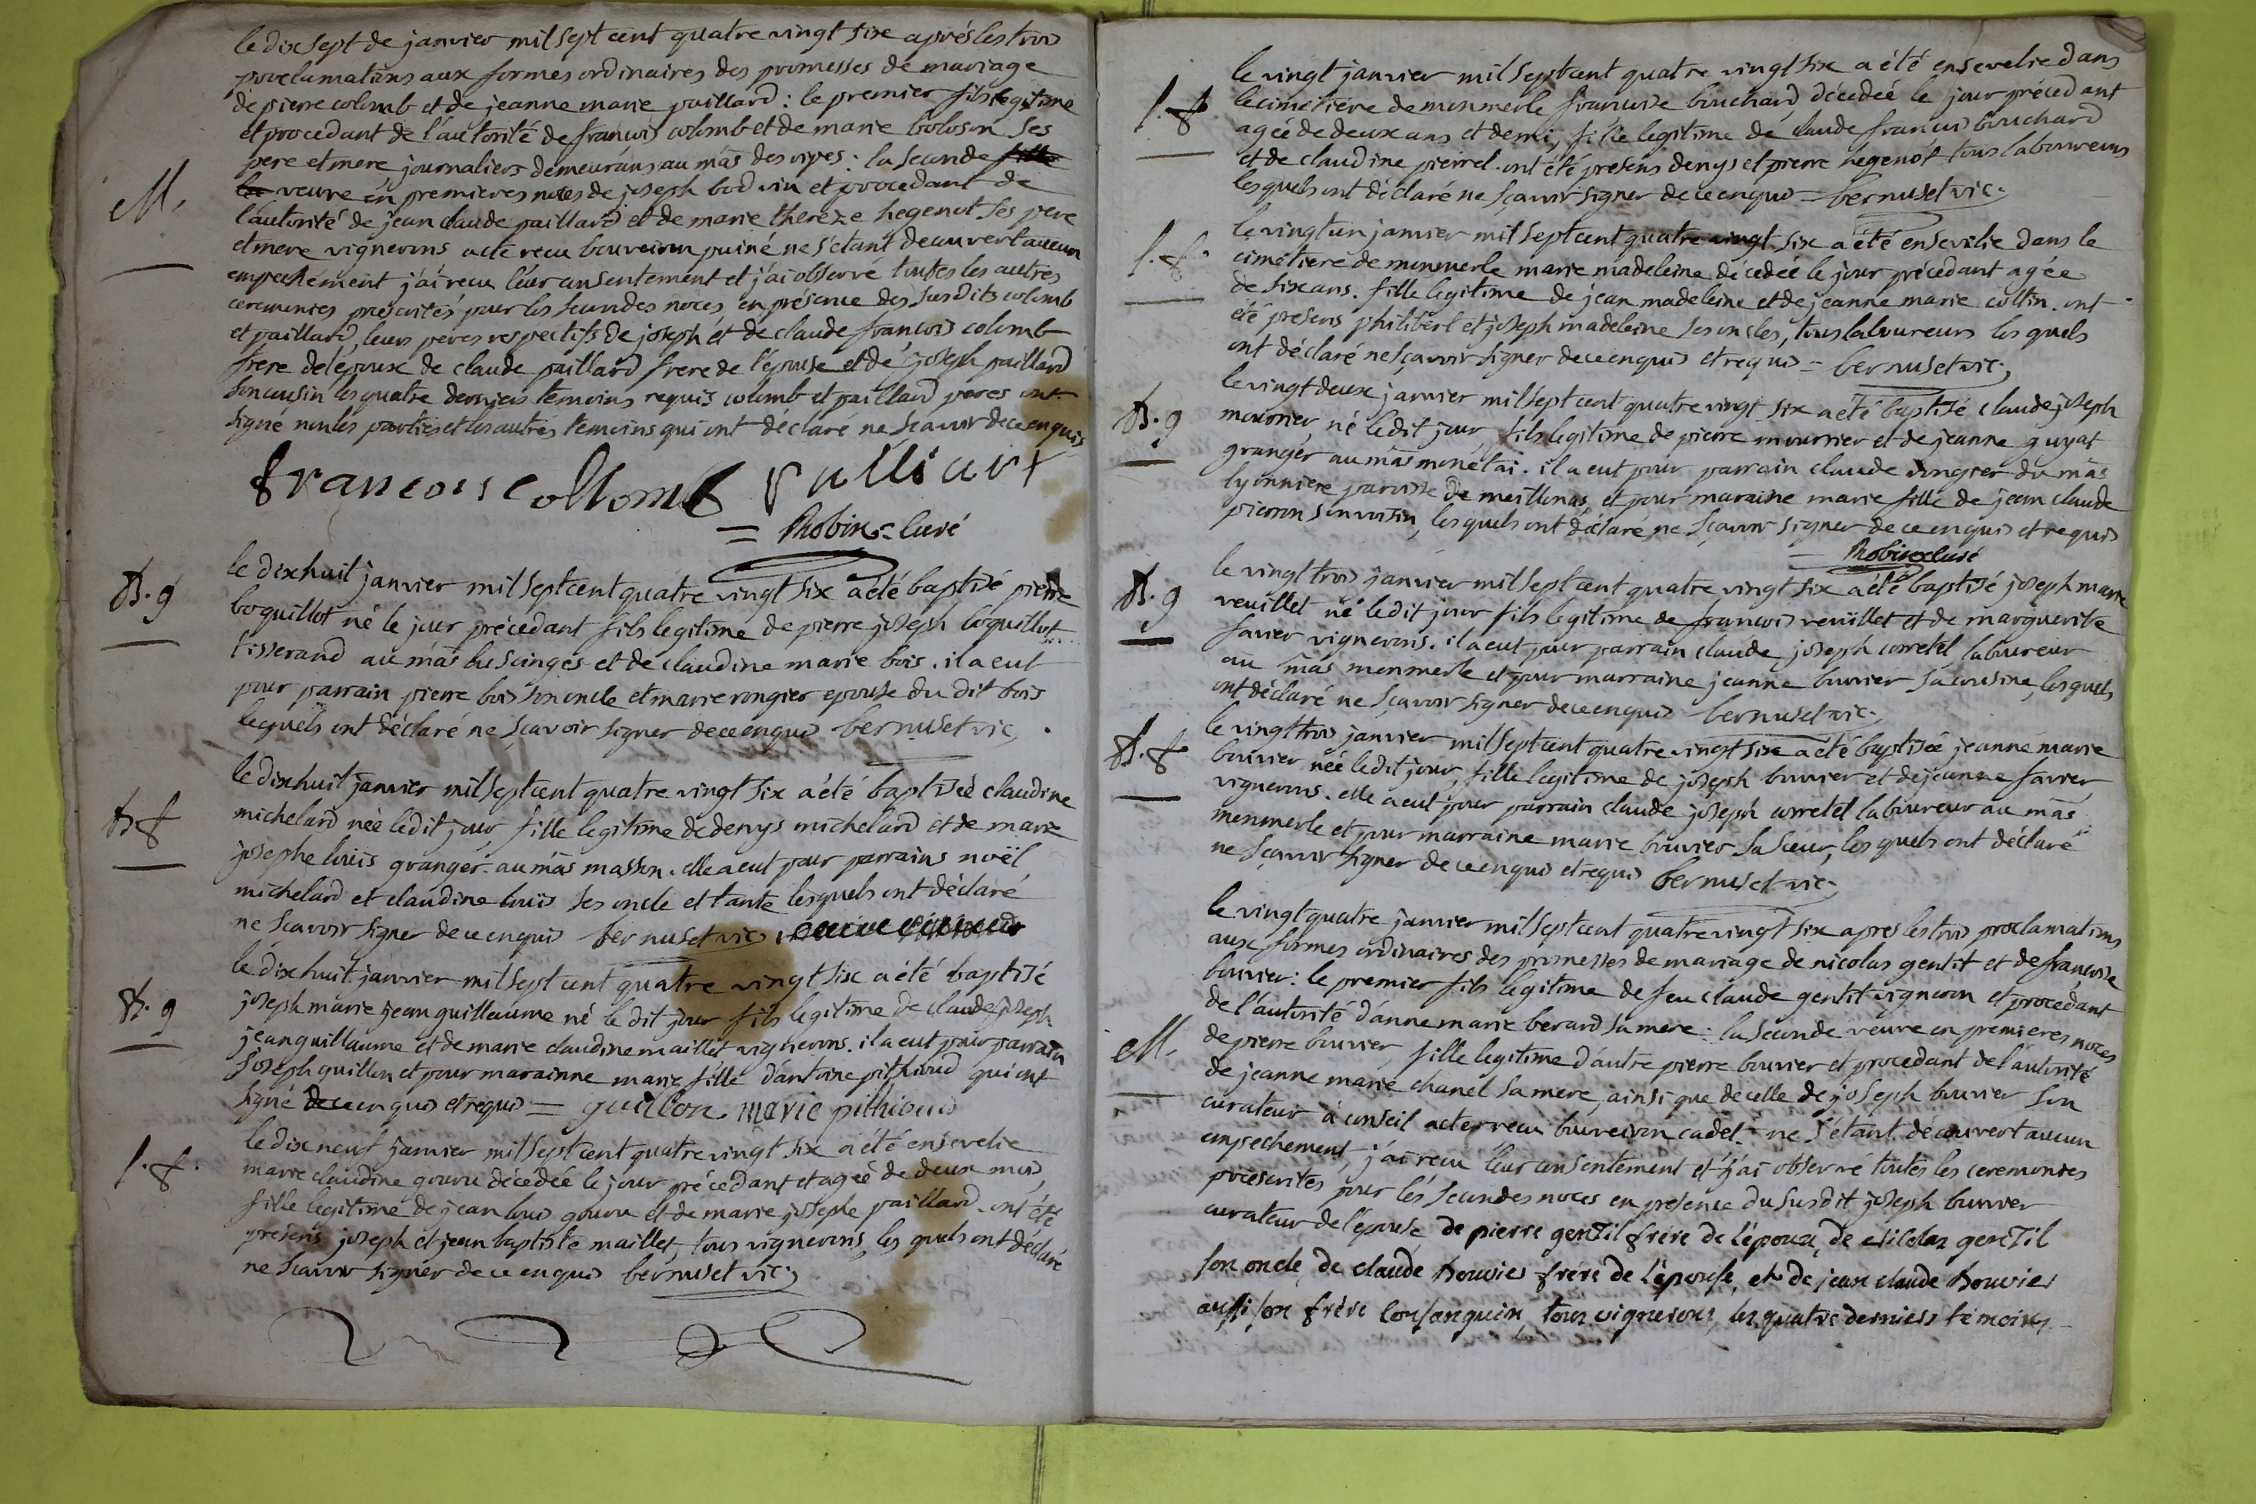 le dix sept de janvier mil sept cent quatre vingt six aprés les trois
proclamations aux formes ordinaires des promesses de mariage
de pierre colomb et de jeanne marie paillard : le premier fils legitime
et procedant de l'autorité de francois colomb et de marie boloson ses
pere et mere journaliers demeurans au mas des rives : la seconde fille
M.
la veuve en premieres noces de joseph bodvin et procedant de
l'autorité de jean claude paillard et de marie thereze hegenot ses pere
et mere vignerons acte recu bouveiron puiné ne s'etant decouvert aucun
empechément j'ai recu leur consentement et j'ai observé toutes les autres
ceremonies prescrités pour les secondes noces en présence des susdits colomb
et paillard, leurs peres respectifs de joseph et de claude francois colomb
frere de l'epoux de claude paillard frere de l'épouse et de joseph paillard
son cousin les quatre derniers temoins requis colomb et paillard peres ont
signé non les parties et les autres temoins qui ont déclaré ne scavoir de ce enquis
francois Collomb paillart
= Robin curé
B. g
le dix huit janvier mil sept cent quatre vingt six a été baptisé pierre
boquillot né le jour précedant fils legitime de pierre joseph boquillot
tisserand au mas les singes et de claudine marie bois. il a eut
pour parrain pierre bois son oncle et marie rongier epouse du dit bois
lesquels ont déclaré ne sçavoir signer de ce enquis bernuset vic.
le dix huit janvier mil sept cent quatre vingt six a été baptisée claudine
B f
michelard née ledit jour fille legitime de denys michelard et de marie
josephe louis granger au mas masson. elle a eut pour parrains noël
michelard et claudine louis ses oncle et tante lesquels ont déclaré
ne scavoir signer de ce enquis bernuset vic
le dix huit janvier mil sept cent quatre vingt six a été baptisé
B. g
joseph marie jeanguillaume né le dit jour fils legitime de claude joseph
jeanguillaume et de marie claudine maillet vignerons. il a eut pour parrain
joseph guillon et pour marainne marie fille d'antoine pithioud qui ont
signé de ce enquis et requis = guillon marie pithioud
le dix neuf janvier mil sept cent quatre vingt six a été ensevelie
f. f.
marie claudine gouvu décedée le jour précedant et agée de deux mois
fille legitime de jean louis gouvu et de marie josephe paillard. ont été
presens joseph et jean baptiste maillet, tous vignerons, les quels ont déclaré
ne scavoir signer de ce enquis bernuset vic.
le vingt janvier mil sept cent quatre vingt six a été ensevelie dans
f. f.
le cimetiere de monmerle francoise bouchard décedée le jour précedant
agée de deux ans et demi, fille legitime de claude francois bouchard
et de claudine pierrel. ont été presens denys et pierre hegenot tous laboureurs
lesquels ont déclaré ne sçavoir signer de ce enquis = bernuset vic.
le vingt un janvier mil sept cent quatre vingt six a été ensevelie dans le
f. f.
cimetiere de monmerle marie madeleine décedée le jour précedant agée
de six ans. fille legitime de jean madeleine et de jeanne marie collin. ont
été presens philibert et joseph madeleine ses oncles, tous laboureurs les quels
ont déclaré ne sçavoir signer de ce enquis et requis = bernuset vic.
le vingt deux janvier mil sept cent quatre vingt six a été baptisé claude joseph
B. g
mourrier né le dit jour fils legitime de pierre mourrier et de jeanne guyat
granger au mas monetai. il a eut pour parrain claude rongier du mas
lyonniere paroisse de meillonas, et pour maraine marie fille de jean claude
pierron son voisin, lesquels ont déclaré ne sçavoir signer de ce enquis et requis
= Robin curé
le vingt trois janvier mil sept cent quatre vingt six a été baptisé joseph marie
B. g
veuillet né ledit jour fils legitime de francois veuillet et de marguerite
favier vignerons. il a eut pour parrain claude joseph corretel laboureur
au mas monmerle et pour marraine jeanne bouvier sa cousine, lesquels
ont déclaré ne sçavoir signer de ce enquis bernuset vic.
le vingt trois janvier mil sept cent quatre vingt six a été baptisée jeanne marie
B. f
bouvier née ledit jour, fille legitime de joseph bouvier et de jeanne favier
vignerons. elle a eut pour parrain claude joseph corretel laboureur au mas
monmerle et pour marraine marie bouvier sa soeur, les quels ont déclaré
ne sçavoir signer de ce enquis et requis bernuset vic.
le vingt quatre janvier mil sept cent quatre vingt six apres les trois proclamations
aux formes ordinaires des promesses de mariage de nicolas gentil et de francoise
bouvier : le premier fils legitime de feu claude gentil vigneron et procedant
de l'autorité d'anne marie berard sa mere : la seconde veuve en premieres noces
M.
de pierre bouvier, fille legitime d'autre pierre bouvier et procedant de l'autorité
de jeanne marie chanel sa mere, ainsi que de celle de joseph bouvier son
curateur à conseil acte recu bouveiron cadet. ne s'étant découvert aucun
empechement, j'ai recu leur consentement et j'ai observé toutes les ceremonies
prescrités pour les secondes noces en presence du susdit joseph bouvier
curateur de l'épouse de pierre gentil frère de l'époux, de nicolas gentil
son oncle, de claude bouvier frère de l'épouse, et de jean claude bouvier
aussi son frère consanguin, tous vignerons, les quatre derniers témoins